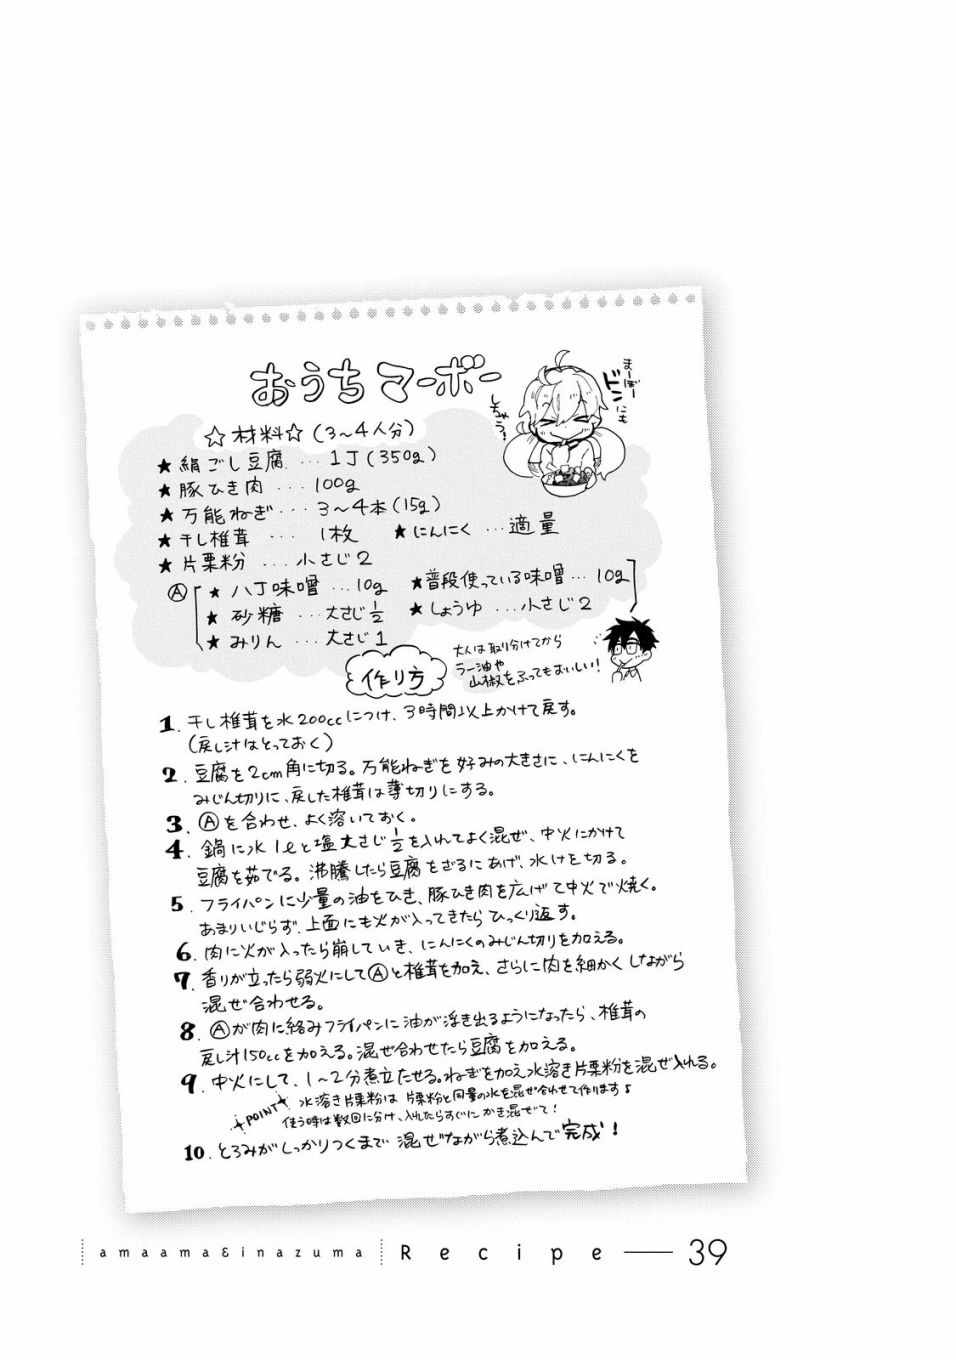 おうちマーボー
まーぼー
ドンにも
しちゃう!
☆材料☆(3〜4人分)
★絹ごし豆腐…1丁(350g)
★豚ひき肉…100g
★万能ねぎ…3〜4本(15g)
★干し椎茸…1枚 ★にんにく…適量
★片栗粉…小さじ2
Ⓐ ★八丁味噌…10g ★普段使っている味噌…10g
★砂糖…大さじ1/2 ★しょうゆ…小さじ2
★みりん…大さじ1
作り方
大人は取り分けてから
ラー油や
山椒をふってもおいしい!
1.干し椎茸を水200ccにつけ、3時間以上かけて戻す。
(戻し汁はとっておく)
2.豆腐を2cm角に切る。万能ねぎを好みの大きさに、にんにくを
みじん切りに、戻した椎茸は薄切りにする。
3.Ⓐを合わせ、よく溶いておく。
4.鍋に水1ℓと塩大さじ1/2を入れてよく混ぜ、中火にかけて
豆腐を茹でる。沸騰したら豆腐をざるにあげ、水けを切る。
5.フライパンに少量の油をひき、豚ひき肉を広げて中火で焼く。
あまりいじらず、上面にも火が入ってきたらひっくり返す。
6.肉に火が入ったら崩していき、にんにくのみじん切りを加える。
7.香りが立ったら弱火にしてⒶと椎茸を加え、さらに肉を細かくしながら
混ぜ合わせる。
8.Ⓐが肉に絡みフライパンに油が浮き出るようになったら、椎茸の
戻し汁150ccを加える。混ぜ合わせたら豆腐を加える。
9.中火にして、1〜2分煮立たせる。ねぎを加え水溶き片栗粉を混ぜ入れる。
POINT 水溶き片栗粉は片栗粉と同量の水を混ぜ合わせて作ります♪
使う時は数回に分け、入れたらすぐにかき混ぜて!
10.とろみがしっかりつくまで混ぜながら煮込んで完成!
amaama&inazuma Recipe — 39